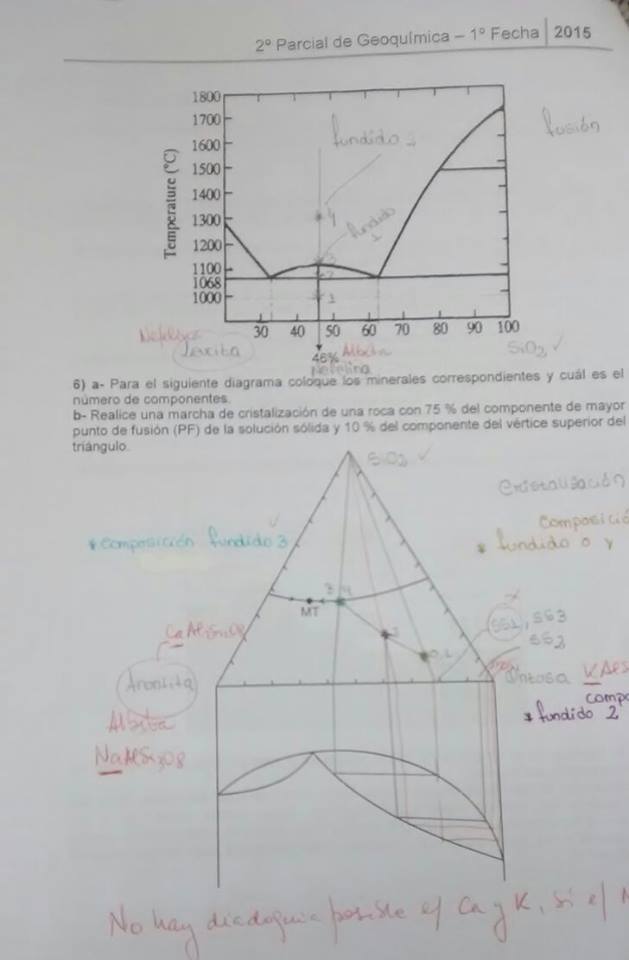 2º Parcial de Geoquímica – 1º Fecha 2015
1800
1700
1600
1500
1400
1300
1200
1100
1068
1000
Temperature (°C)
fundido 2
fusión
4
fundido
1
3
2
1
30 40 50 60 70 80 90 100
46% Albita
Leucita
Nefelina
SiO2 ✓
6) a- Para el siguiente diagrama coloque los minerales correspondientes y cuál es el
número de componentes.
b- Realice una marcha de cristalización de una roca con 75 % del componente de mayor
punto de fusión (PF) de la solución sólida y 10 % del componente del vértice superior del
triángulo.
SiO2 ✓
Cristalización
* composición fundido 3
composició
* fundido 0 y
MT
SS1, SS3
SS2
Anortita
Ortosa
compo
* fundido 2
Albita
NaAlSi3O8
No hay diadoquia posible e/ Ca y K, si e/ N